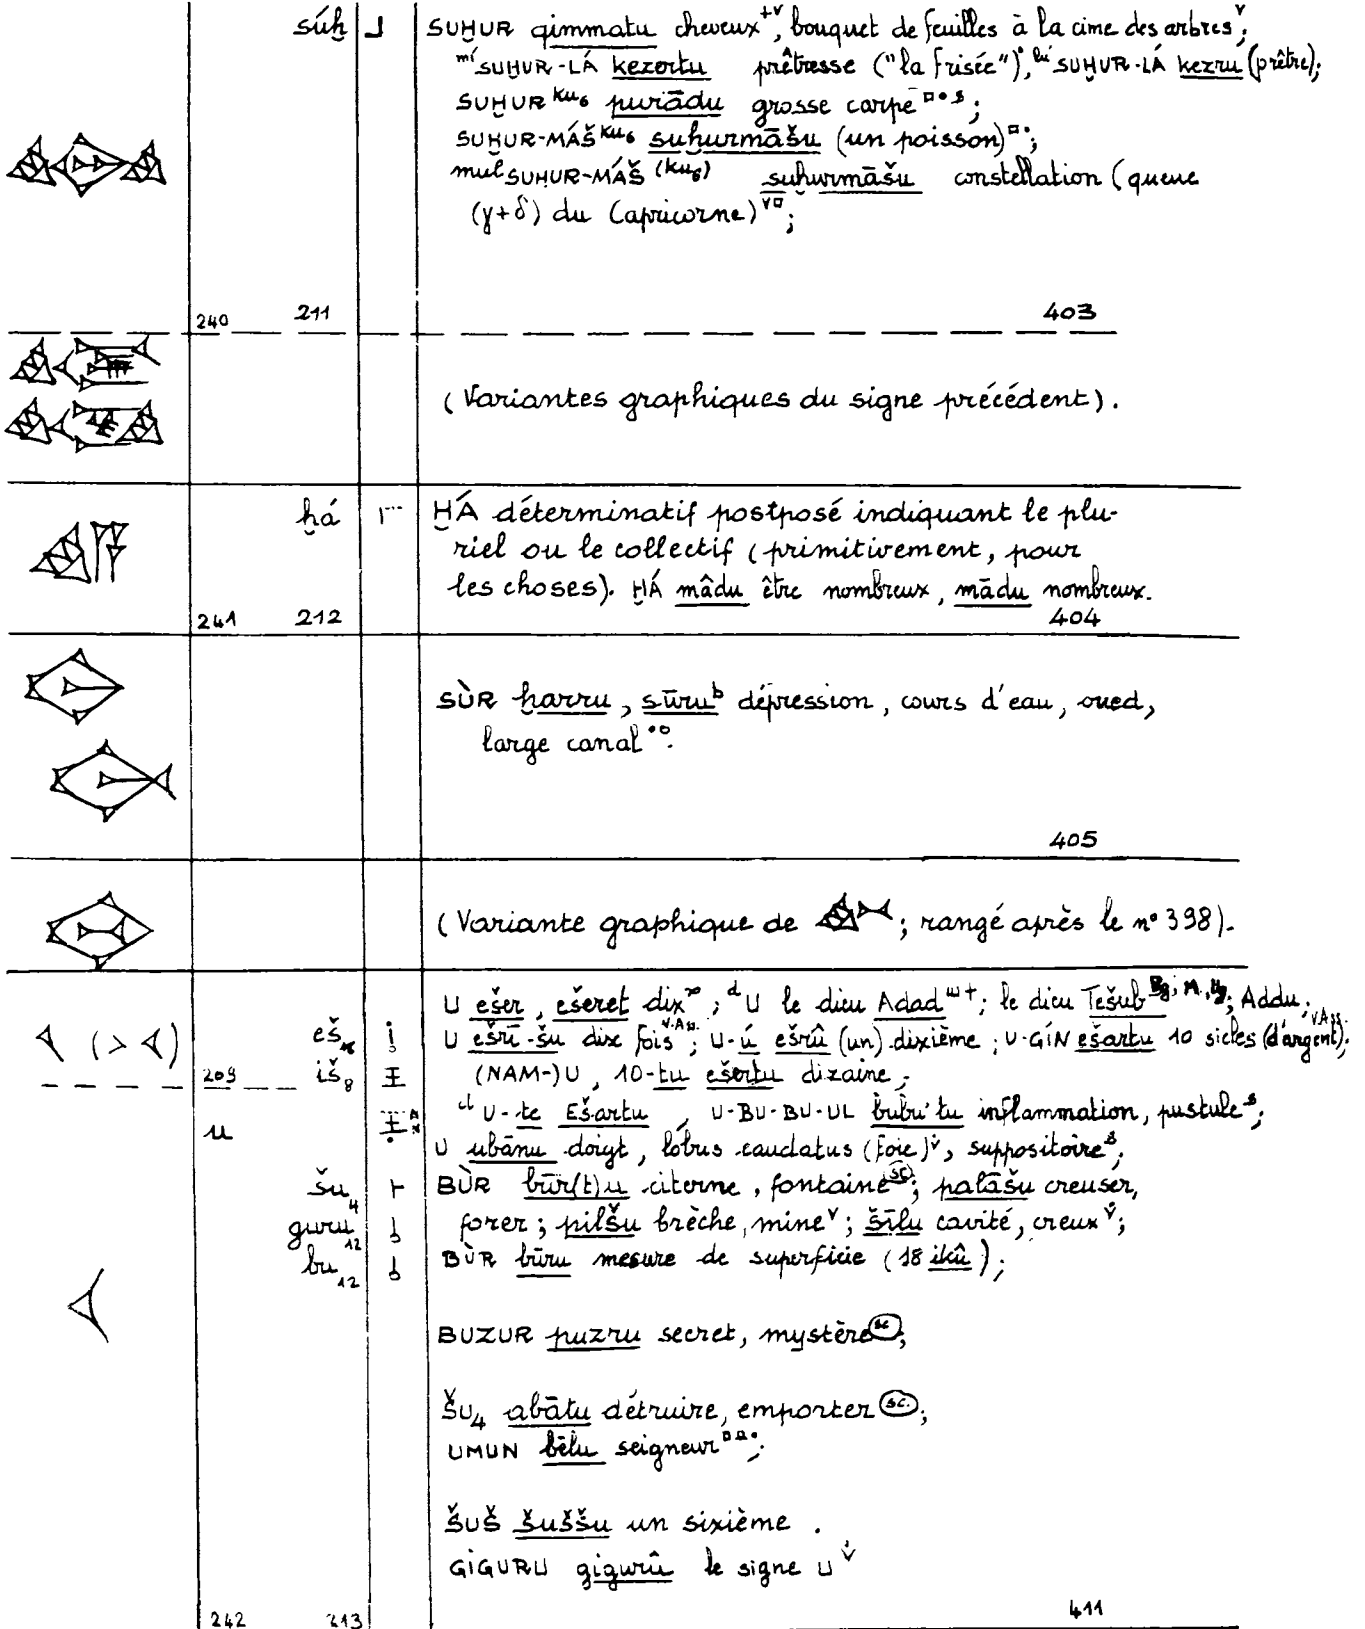 súḫ SUḪUR qimmatu cheveux, bouquet de feuilles à la cime des arbres;
mí SUḪUR-LÁ kezertu prêtresse ("la frisée"), lú SUḪUR-LÁ kezru (prêtre);
SUḪUR ku₆ purādu grosse carpe;
SUḪUR-MÁŠ ku₆ suḫurmāšu (un poisson);
mul SUḪUR-MÁŠ (ku₆) suḫurmāšu constellation (queue
(γ+δ) du Capricorne);
240 211 403
(Variantes graphiques du signe précédent).
ḫá ḪÁ déterminatif postposé indiquant le plu-
riel ou le collectif (primitivement, pour
les choses). ḪÁ mâdu être nombreux, mādu nombreux.
241 212 404
SÙR ḫarru, sūru b dépression, cours d'eau, oued,
large canal
405
(Variante graphique de ; rangé après le nº 398).
U ešer, ešeret dix; d U le dieu Adad; le dieu Tešub; Addu;
eš₁₆ U ešrī-šu dix fois; U-ú ešrû (un) dixième; U-GÍN ešartu 10 sicles (d'argent);
209 iš₈ (NAM-)U, 10-tu ešertu dizaine;
d U-te Ešartu, U-BU-BU-UL bubu'tu inflammation, pustule;
u U ubānu doigt, lobus caudatus (foie), suppositoire;
šu₄ BÙR būr(t)u citerne, fontaine sc; palāšu creuser,
guru₁₂ forer; pilšu brèche, mine; šīlu cavité, creux;
bu₁₂ BÙR būru mesure de superficie (18 ikû);
BUZUR puzru secret, mystère sc;
ŠU₄ abātu détruire, emporter sc.;
UMUN bēlu seigneur;
ŠUŠ šuššu un sixième.
GIGURU gigurû le signe U
242 213 411